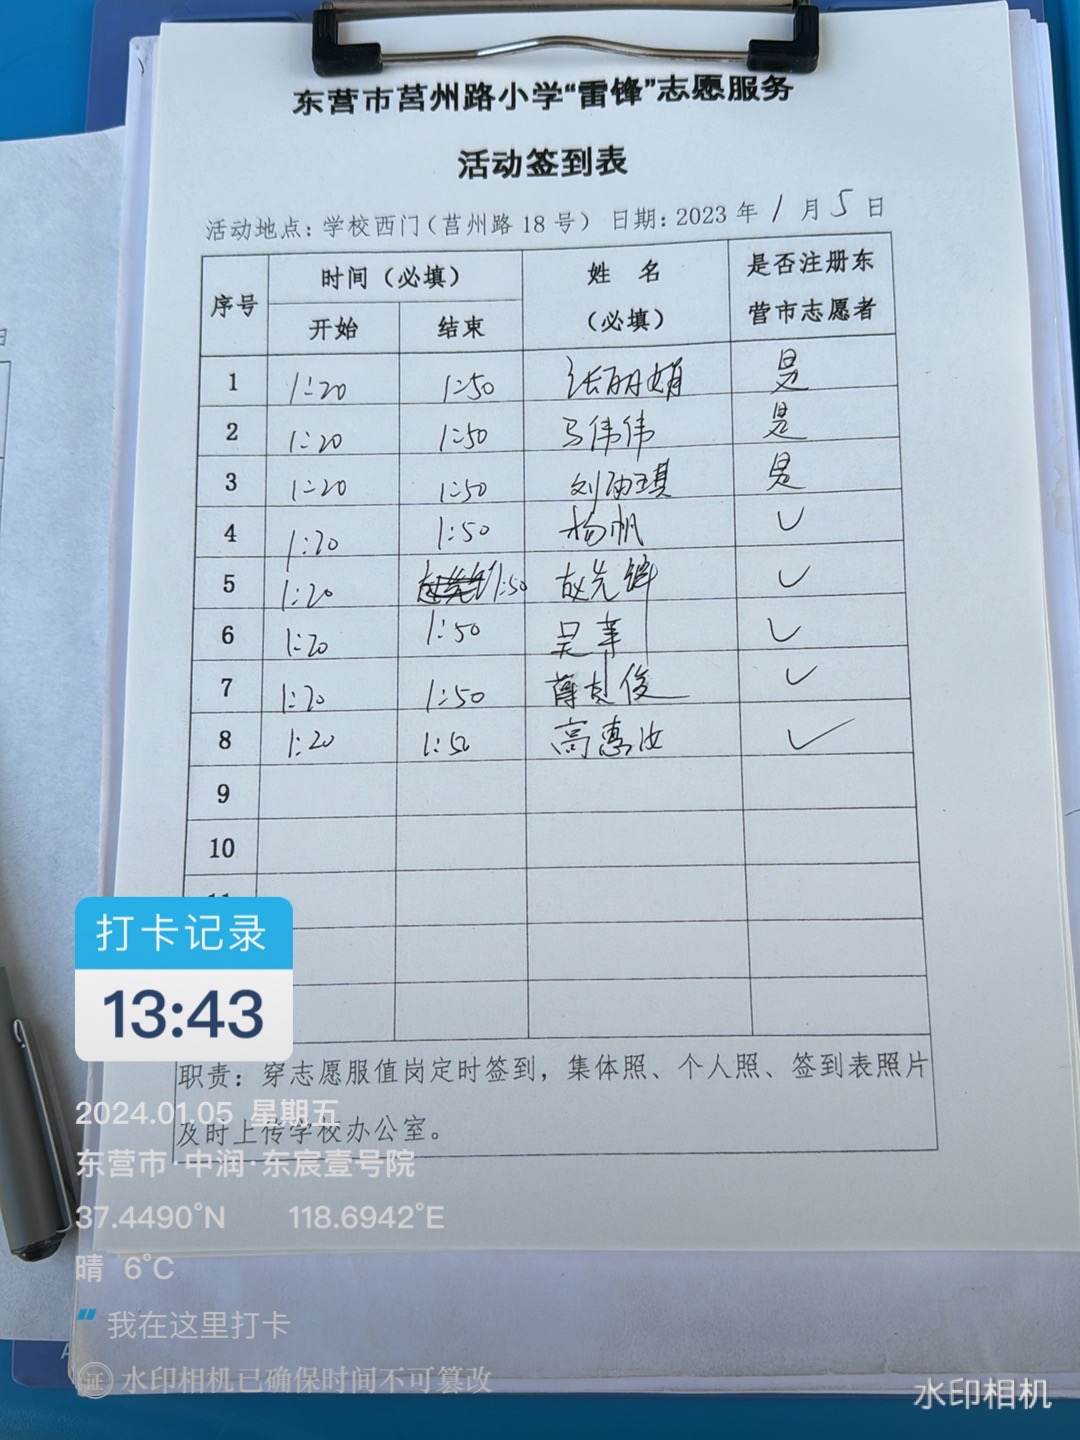 东营市莒州路小学“雷锋”志愿服务
活动签到表
活动地点：学校西门（莒州路 18 号） 日期：2023 年 1 月 5 日
序号 时间（必填） 姓 名（必填） 是否注册东营市志愿者
开始 结束
1 1:20 1:50 张丽娟 是
2 1:20 1:50 马伟伟 是
3 1:20 1:50 刘雨琪 是
4 1:20 1:50 杨帆 ✓
5 1:20 1:50 赵先锋 ✓
6 1:20 1:50 吴苹 ✓
7 1:20 1:50 俊 ✓
8 1:20 1:50 高惠汝 ✓
9
10
职责：穿志愿服值岗定时签到，集体照、个人照、签到表照片
及时上传学校办公室。
打卡记录
13:43
2024.01.05 星期五
东营市·中润·东宸壹号院
37.4490°N 118.6942°E
晴 6°C
我在这里打卡
证 水印相机已确保时间不可篡改
水印相机